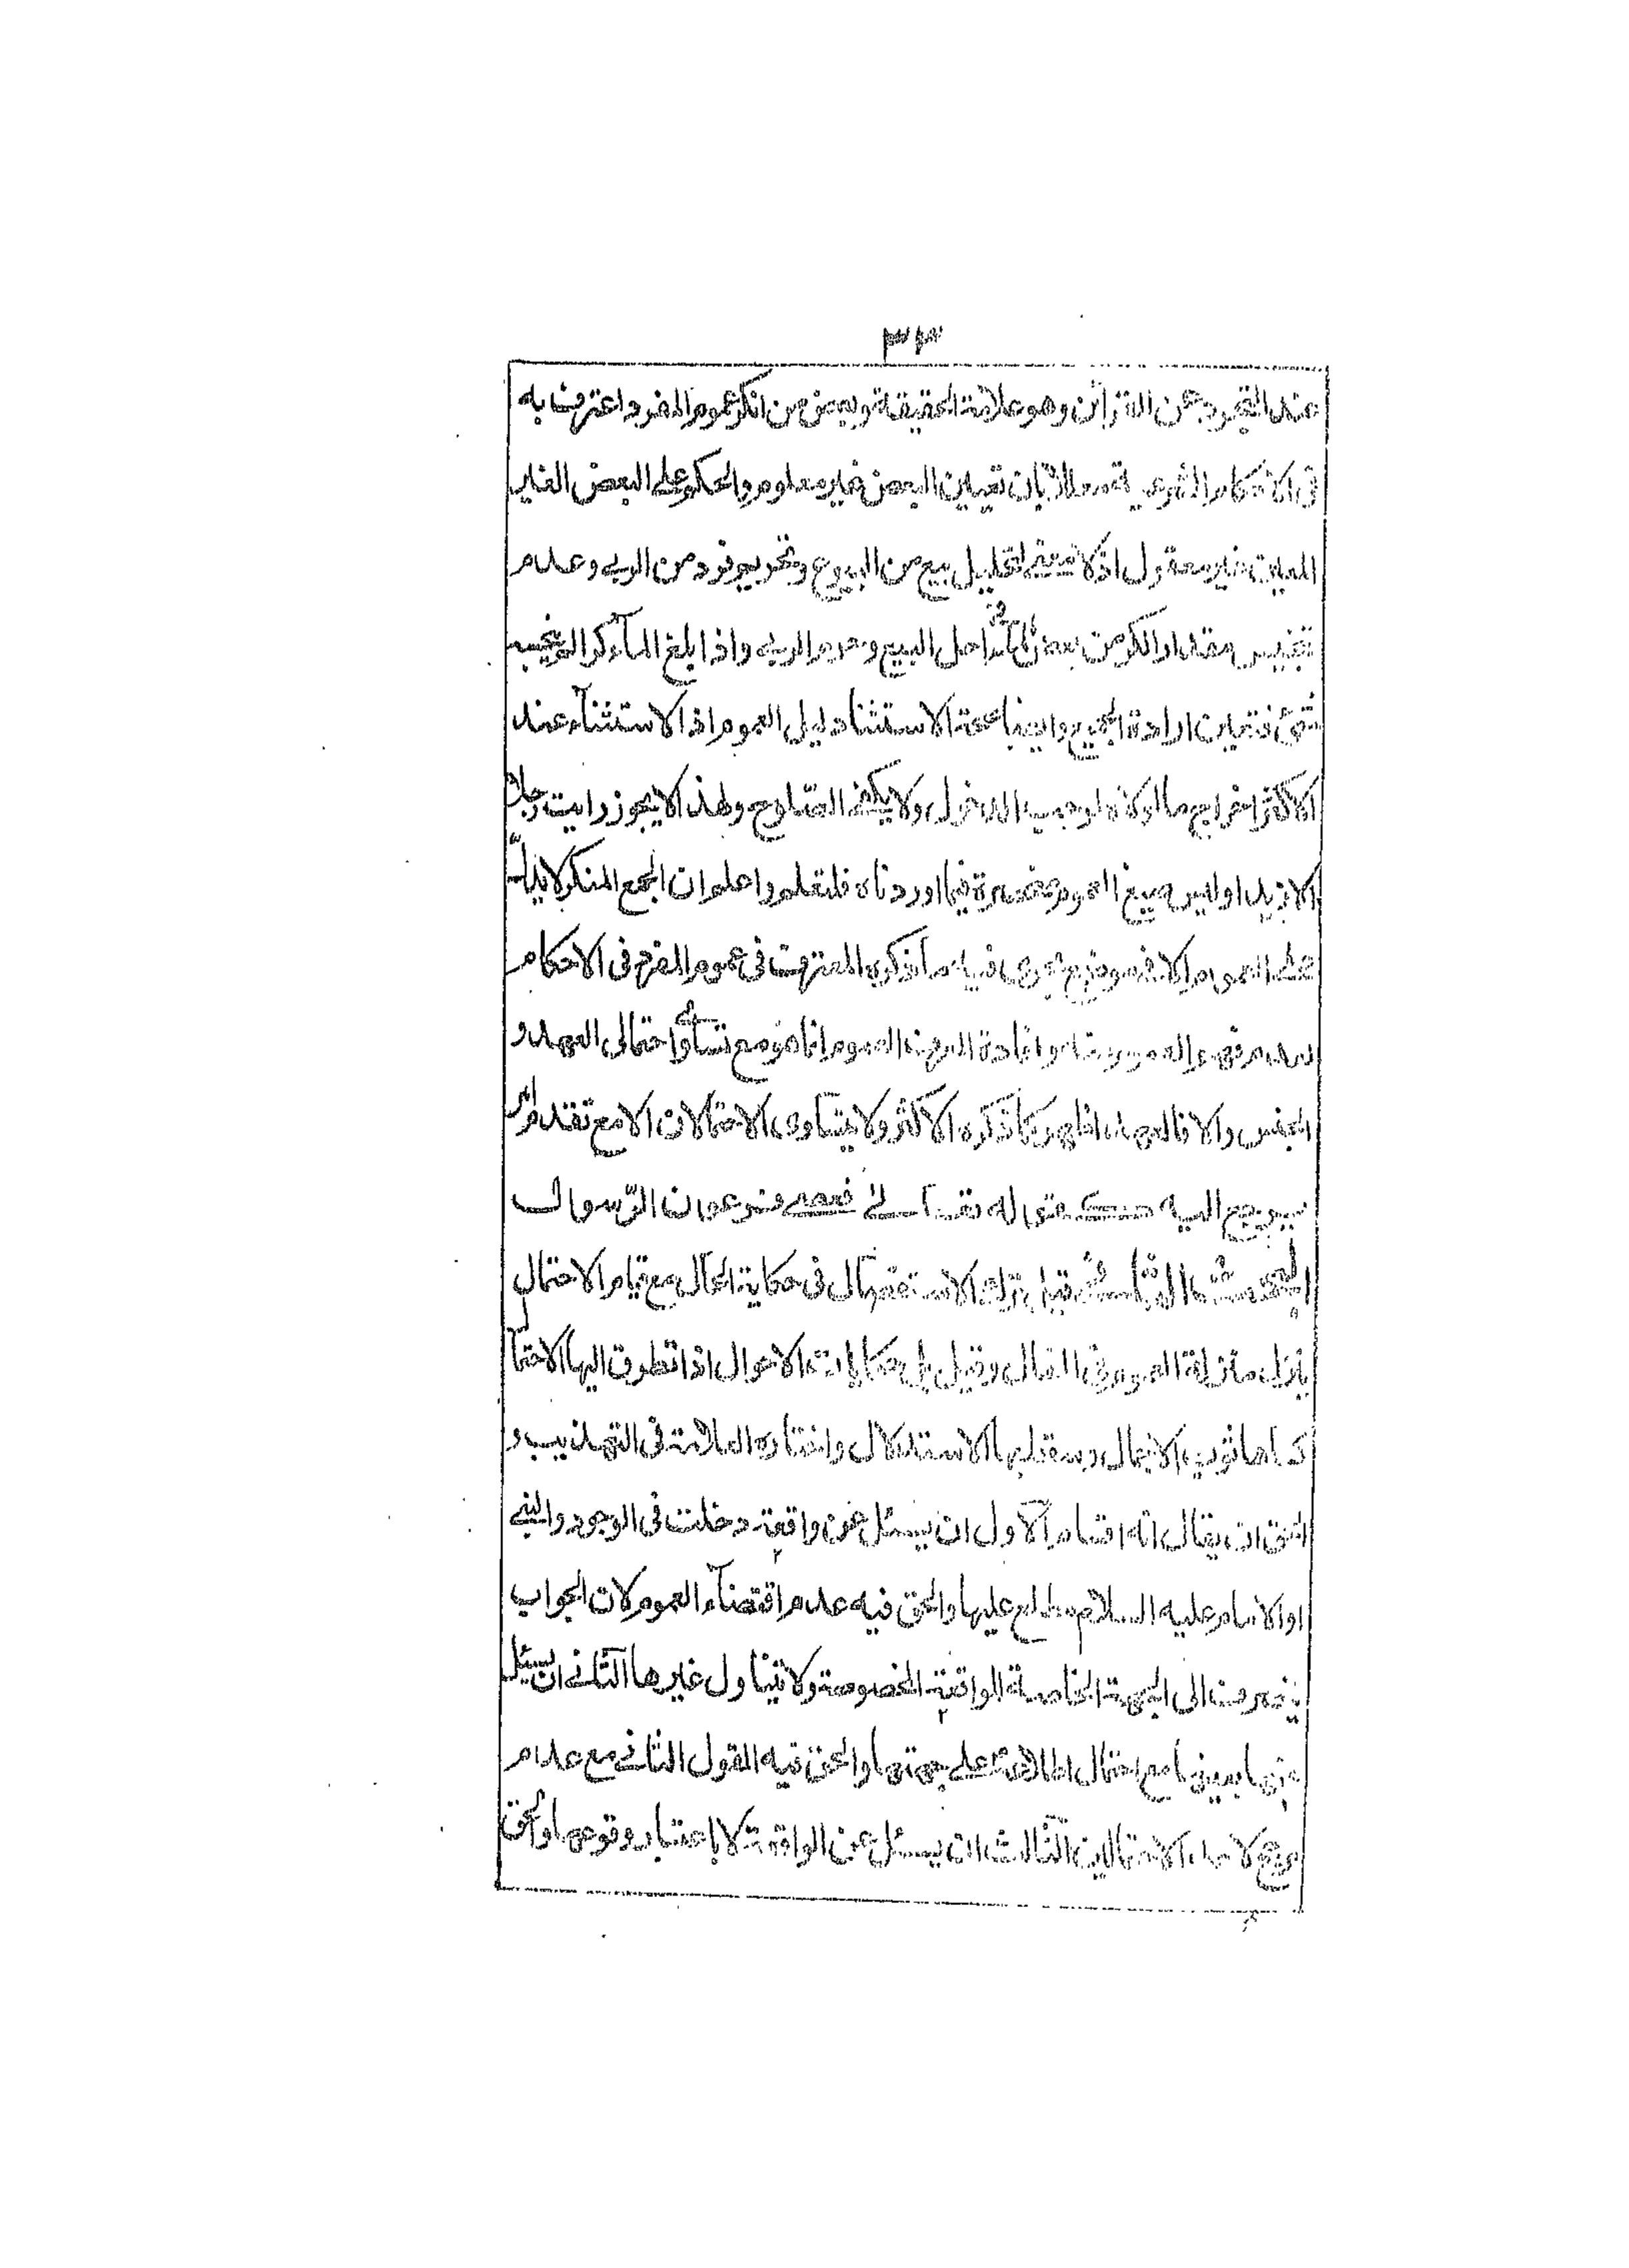 ٣٣
عند التجرد عن القرائن وهو علامة الحقيقة وبعض من انكر عموم المفرد اعترف به
فى الاحكام الشرعية معللا بان تعيين البعض غير معلوم والحكم على البعض الغير
المعين غير معقول اذ لا معنى لتحليل بيع من البيوع وتحريم فرد من الربى وعدم
تنجيس مقدار الكر من بعض الماء احل البيع وحرم الربى واذا بلغ الماء كرا لم ينجسه
شئ فتعين ارادة الجميع وايضا صحة الاستثنا دليل العموم اذ الاستثناء عند
الاكثر اخراج ما لولاه لوجب الدخول ولا يكفى الصلوح ولهذا لا يجوز رايت رجلا
الا زيدا وليس صيغ العموم منحصرة فيما اوردناه فلتعلم واعلم ان الجمع المنكر لا يدل
على العموم الا فى موضع يجرى فيه ما ذكره المعترف فى عموم المفرد فى الاحكام
العموم وافادة المعرف العموم انما هو مع تساوى احتمالى العهد و
الجنس والا فالعهد اظهر كما ذكره الاكثر ولا يتساوى الاحتمالان الا مع تقدم امر
يرجع اليه كقوله تعالى فعصى فرعون الرسول
البحث الثالث قيل ترك الاستفصال فى حكاية الحال مع قيام الاحتمال
ينزل منزلة العموم فى المقال وقيل بل حكايات الاحوال اذا تطرق اليها الاحتمال
كساها ثوب الاجمال وسقط بها الاستدلال واختاره العلامة فى التهذيب و
الحق ان يقال انه اقسام الاول ان يسئل عن واقعة دخلت فى الوجود والنبى
او الامام عليه السلام مطلع عليها والحق فيه عدم اقتضاء العموم لان الجواب
ينصرف الى الجهة الخاصة الواقعة المخصوصة ولا يتناول غيرها الثانى ان يسئل
عنها بعينها مع احتمال اطلاعه على جهتها والحق فيه القول الثانى مع عدم
مرجح لاحد الاحتمالين الثالث ان يسئل عن الواقعة لا باعتبار وقوعها والحق